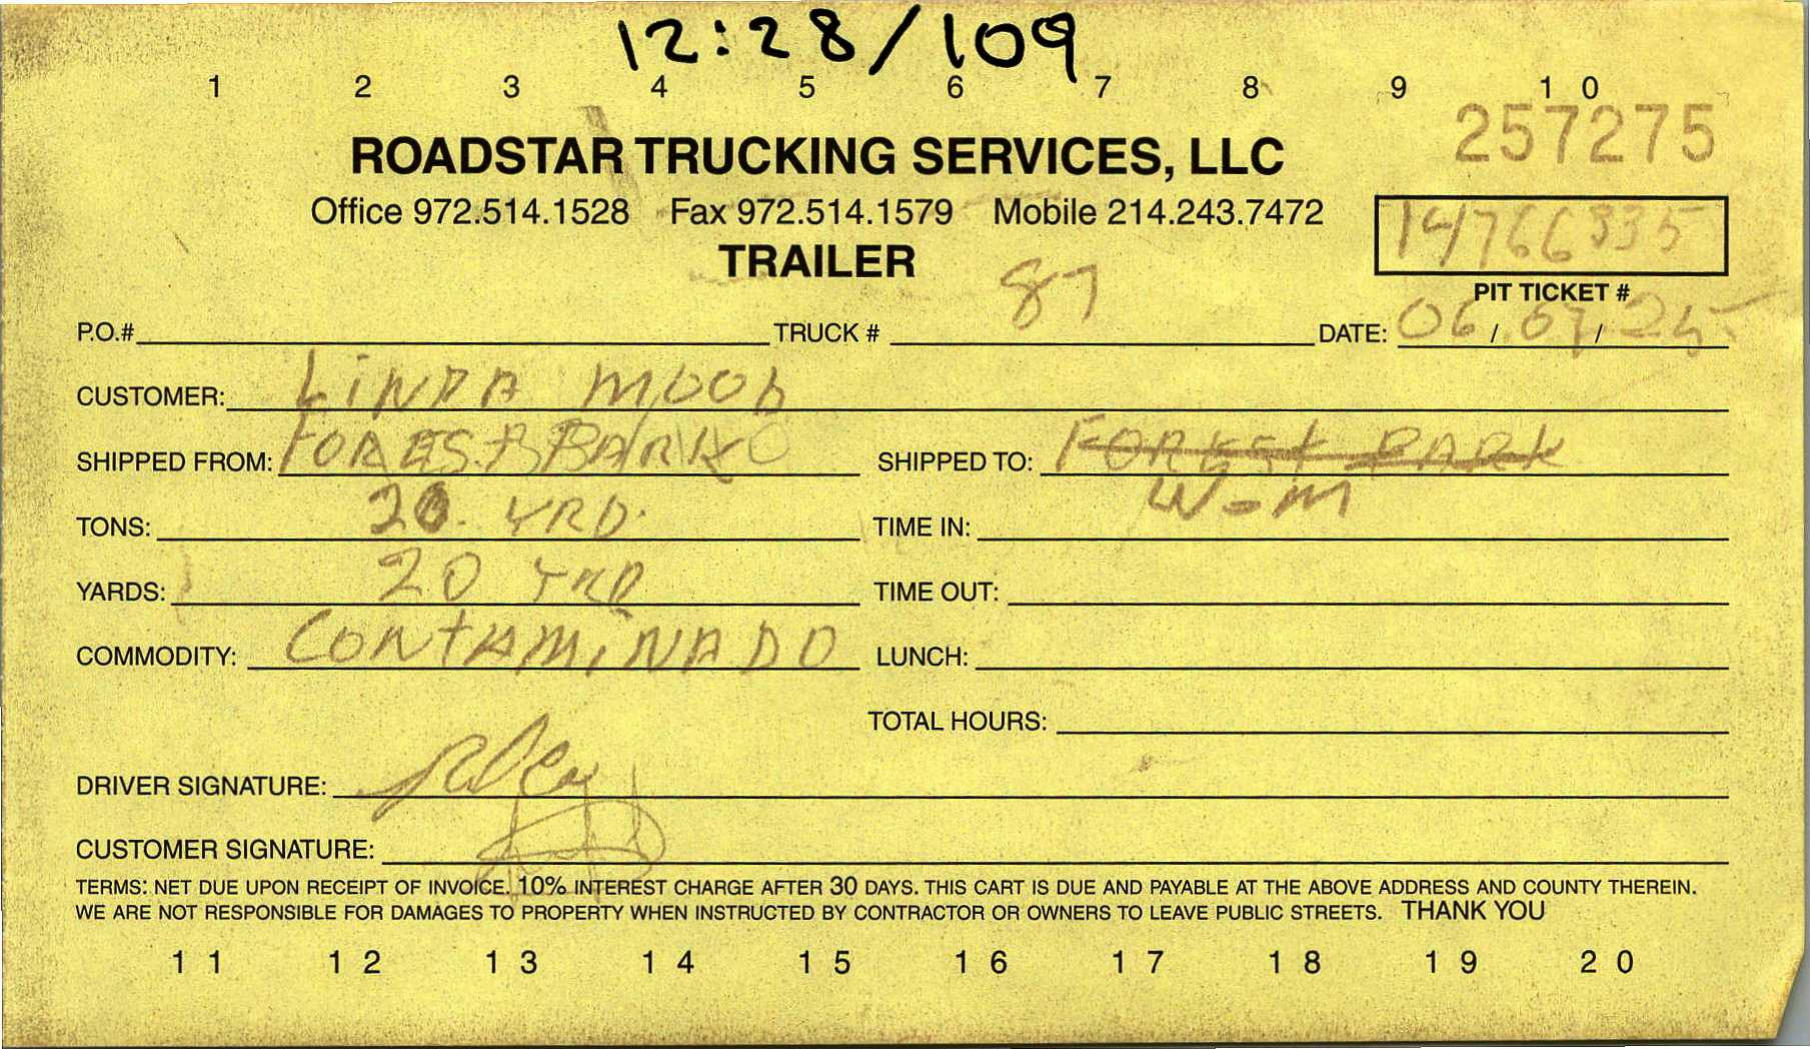 12:28/109
1 2 3 4 5 6 7 8 9 10
257275
ROADSTAR TRUCKING SERVICES, LLC
Office 972.514.1528 Fax 972.514.1579 Mobile 214.243.7472
14766335
TRAILER
PIT TICKET #
P.O.# TRUCK # 87 DATE: 06/07/25
CUSTOMER: LiNDA MOOD
SHIPPED FROM: FOREST PARK SHIPPED TO: FOREST PARK
W-M
TONS: 20 YRD. TIME IN:
YARDS: 20 YRD TIME OUT:
COMMODITY: CONTAMiNADO LUNCH:
TOTAL HOURS:
DRIVER SIGNATURE:
CUSTOMER SIGNATURE:
TERMS: NET DUE UPON RECEIPT OF INVOICE. 10% INTEREST CHARGE AFTER 30 DAYS. THIS CART IS DUE AND PAYABLE AT THE ABOVE ADDRESS AND COUNTY THEREIN.
WE ARE NOT RESPONSIBLE FOR DAMAGES TO PROPERTY WHEN INSTRUCTED BY CONTRACTOR OR OWNERS TO LEAVE PUBLIC STREETS. THANK YOU
11 12 13 14 15 16 17 18 19 20